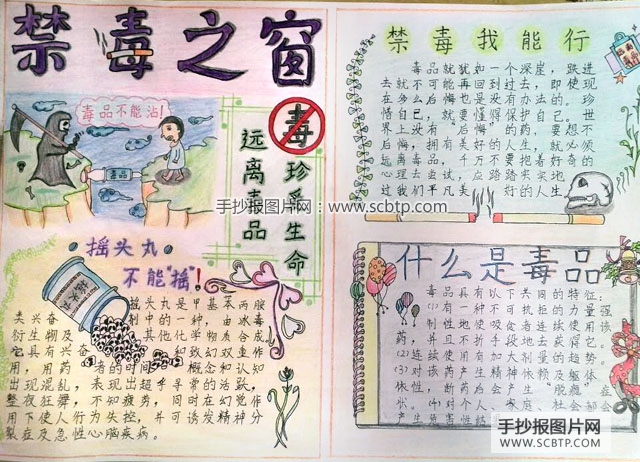 禁毒之窗
毒品不能沾!
毒品
远离毒品
珍爱生命
毒
摇头丸
不能"摇"!
摇头丸
摇头丸是甲基苯丙胺
类兴奋剂中的一种,由冰毒
衍生物及其他化学物质合成,
它具有兴奋和致幻双重作
用,用药者的时间概念和认知
出现混乱,表现出超乎寻常的活跃,
整夜狂舞,不知疲劳,同时在幻觉作
用下使人行为失控,并可诱发精神分
裂症及急性心脑疾病。
禁毒我能行
毒品就犹如一个深崖,跃进
去就不可能再回到过去,即使现
在多么后悔也是没有办法的。珍
惜自己,就要懂得保护自己。世
界上没有"后悔"的药,要想不
后悔,拥有美好的人生,就必须
远离毒品,千万不要抱着好奇的
心理去尝试,应踏踏实实地
过我们平凡美好的人生
什么是毒品
毒品具有以下共同的特征:
(1)有一种不可抗拒的力量强
制性地使吸食者连续使用该
药,并且不折手段地去获得它。
(2)连续使用有加大剂量的趋势。
(3)对该药产生精神依赖及躯体
依性,断药后会产生"脱瘾"症
状。(4)对个人、家庭、社会都会
产生危害性
手抄报图片网:www.scbtp.com
手抄报图片网
WWW.SCBTP.COM